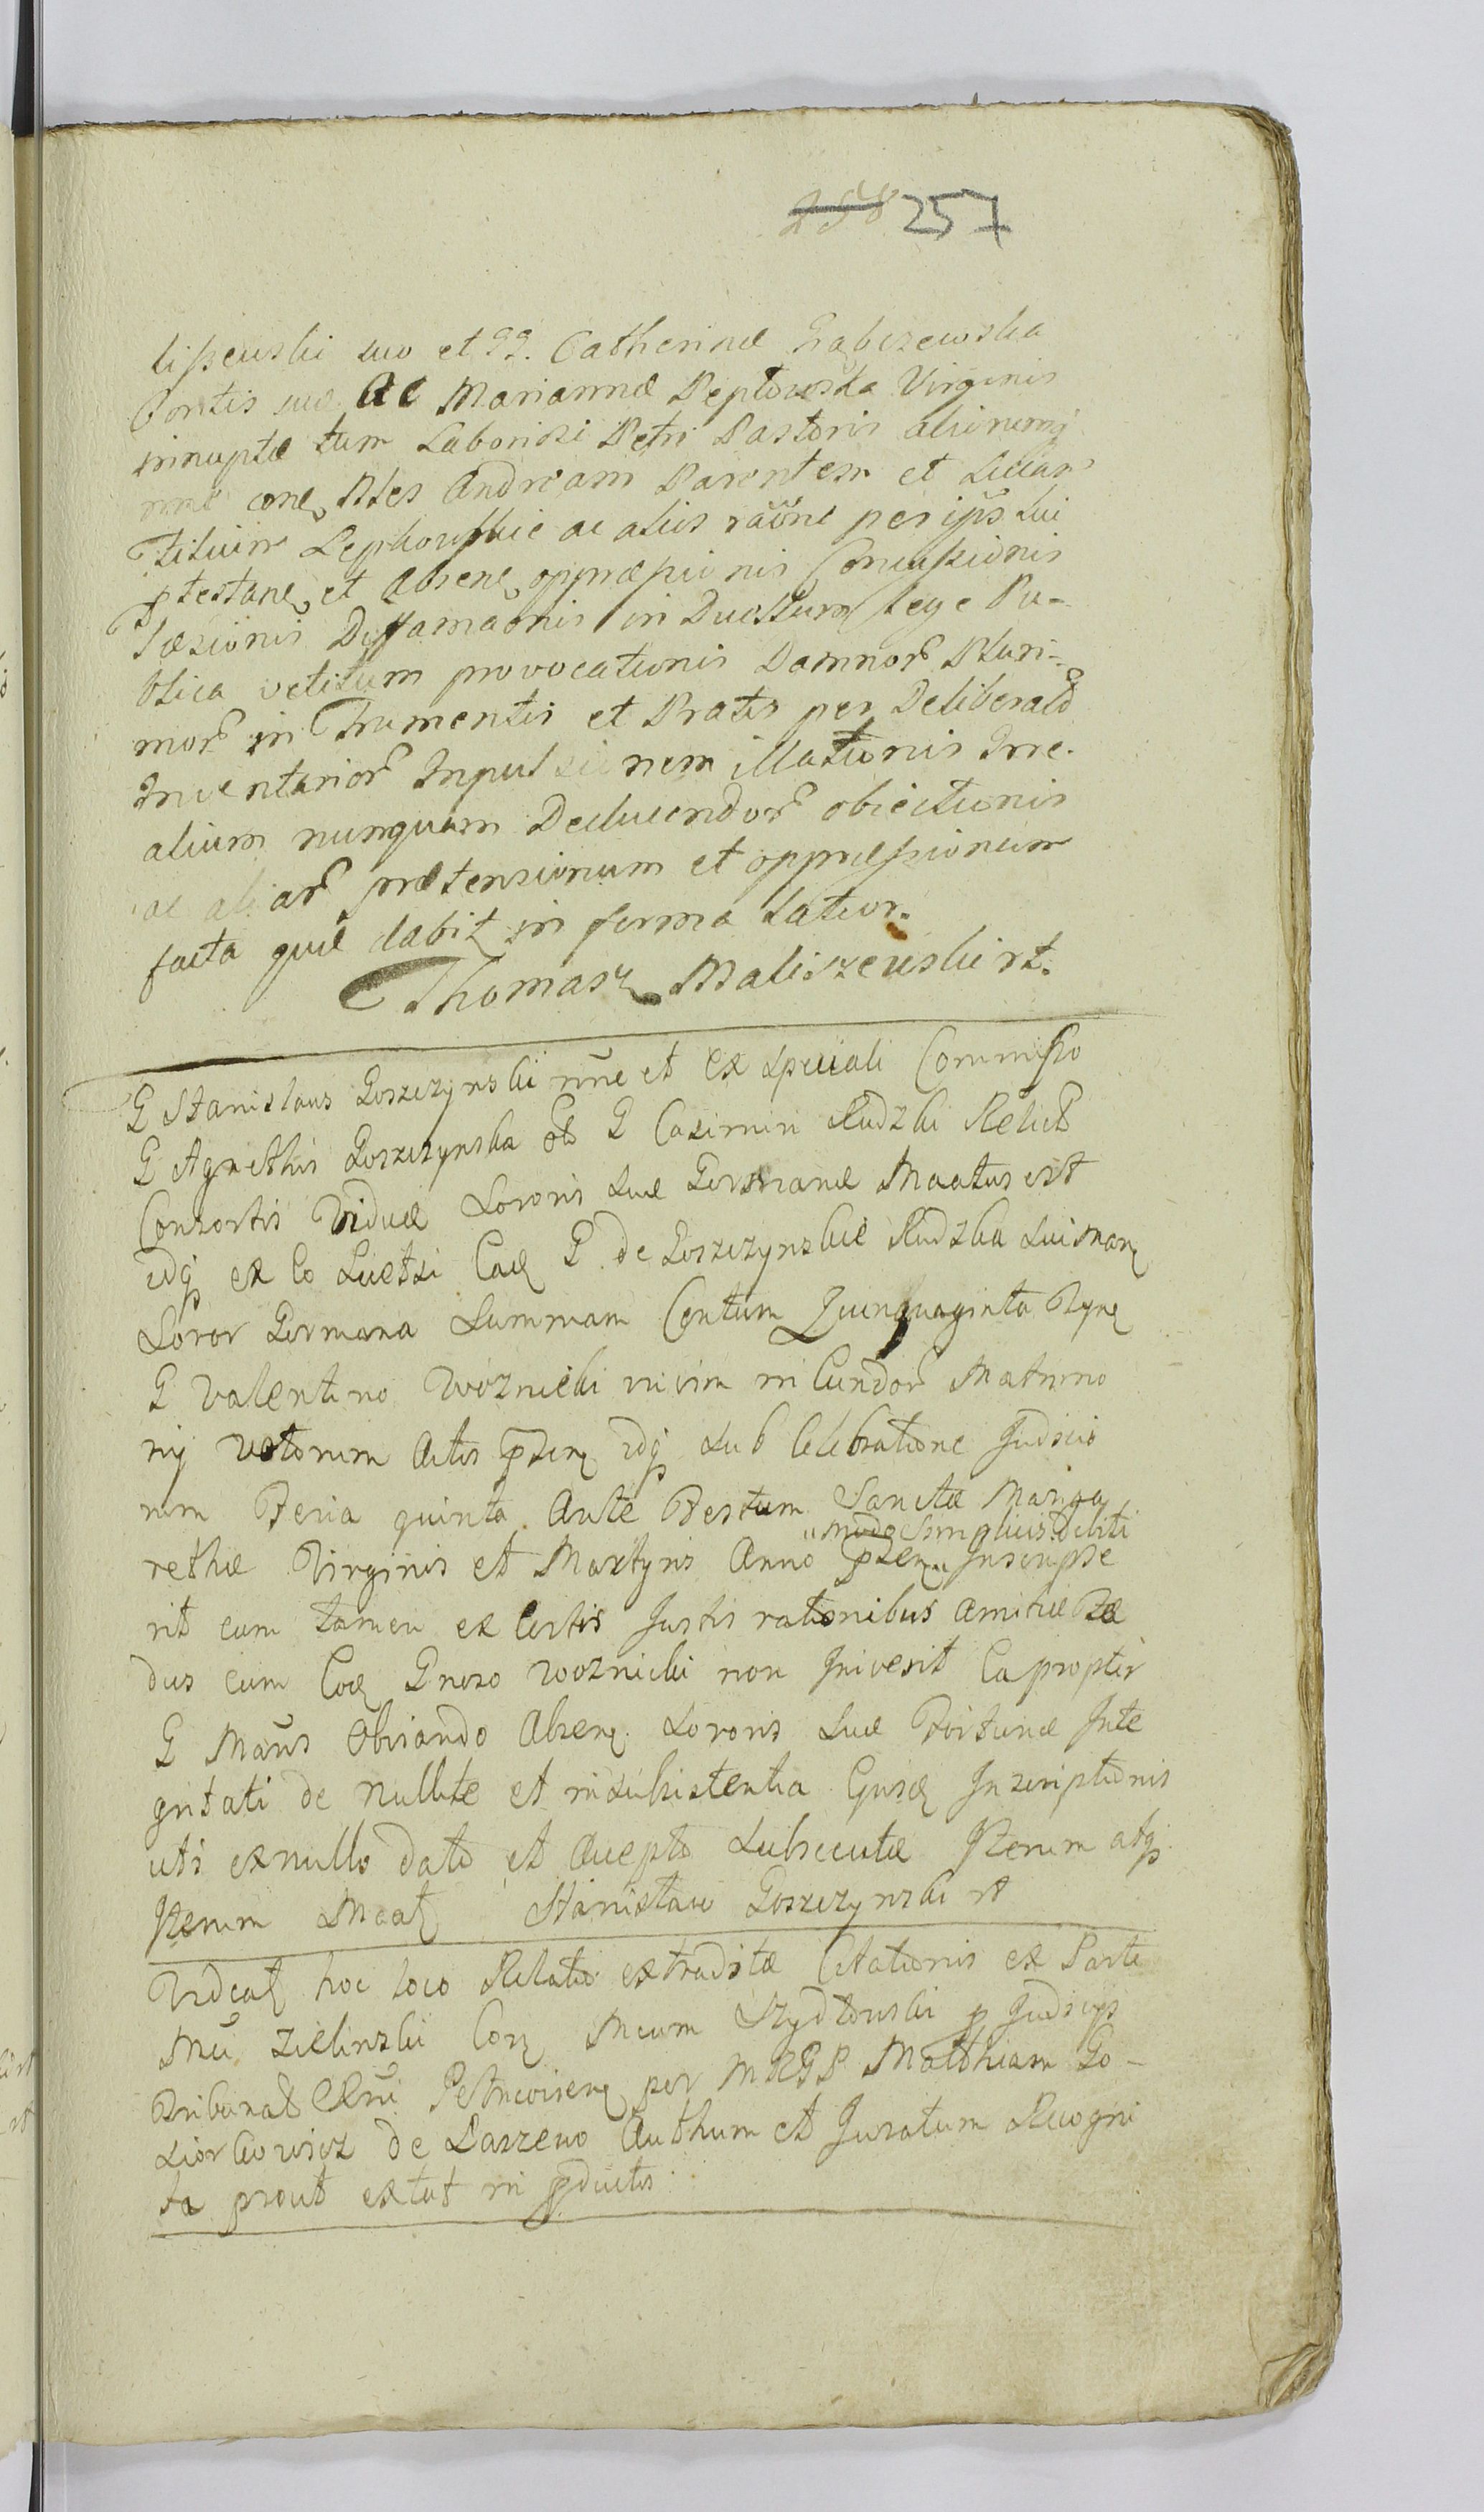 258 257
liszewski suo et GG. Catherinæ Grabczewska
Contis suæ Ac Mariannæ Peptowska Virginis
innuptæ tum Laboriosi Petri Pastoris aliorumq
nne cone Ntes Andream Parentem et Lucam
filium Lepkowskie ac aliis raone per ips sui
ptestane et Absene oppræssionis Concussionis
Læsionis Diffamaonis in Duellum lege Pu-
blica vetitum provocationis Damnor Pluri-
mor in Frumentis et Pratis per Deliberatã
Inventarior Inpulsionem illationis Irre-
alium nunquam Deducendor obiectionis
ac aliar prætensionum et oppræssionum
facta quæ dabit in forma Latior.
Thomasz Maliszewski rt.
G Stanislaus Goszczynski nne et Ex speciali Commisso
G Agnethis Goszczynska olb G Casimiri Rudzki Relictæ
Consortis Viduæ Sororis Suæ Germanæ Maatus est
idq ex Eo Quetsi Eade G de Goszczynskie Rudzka Luisman
Soror Germana Summam Centum Quinquaginta Tyne
G Valentino Woznicki vivim in Eundor Matrimo
nij Votorum Actis pzene idq sub Celebratione Judicio
rum Feria quinta Ante Festum Sanctæ Marga
"modo simplicis debiti
rethæ Virginis et Martyris Anno pzen " Inscripse
rit cum tamen ex Certis Justis rationibus Amicitiæ Fæ
dus cum Eode Gneroso Woznicki non Inivesit Eapropter
G Mañs Obviando Absene Sororis Suæ Fortunæ Inte
gritati de Nullitte et insubsistentia Ejusde Inscriptionis
uti ex nullo dato et Accepto Subsecutæ Iterum atq
Iterum Maat Stanisław Goszczynski rt
Videat hoc loco Relatio extraditæ Citationis ex Parte
Mci Zielinski Cora Mcum Szydłowski p Judicijs
Tribunal Rni Petricovien per MRGP Matthiam Go-
siorkowicz de Laszewo Authum et Juratum Recogni
ta prout extat in pductis